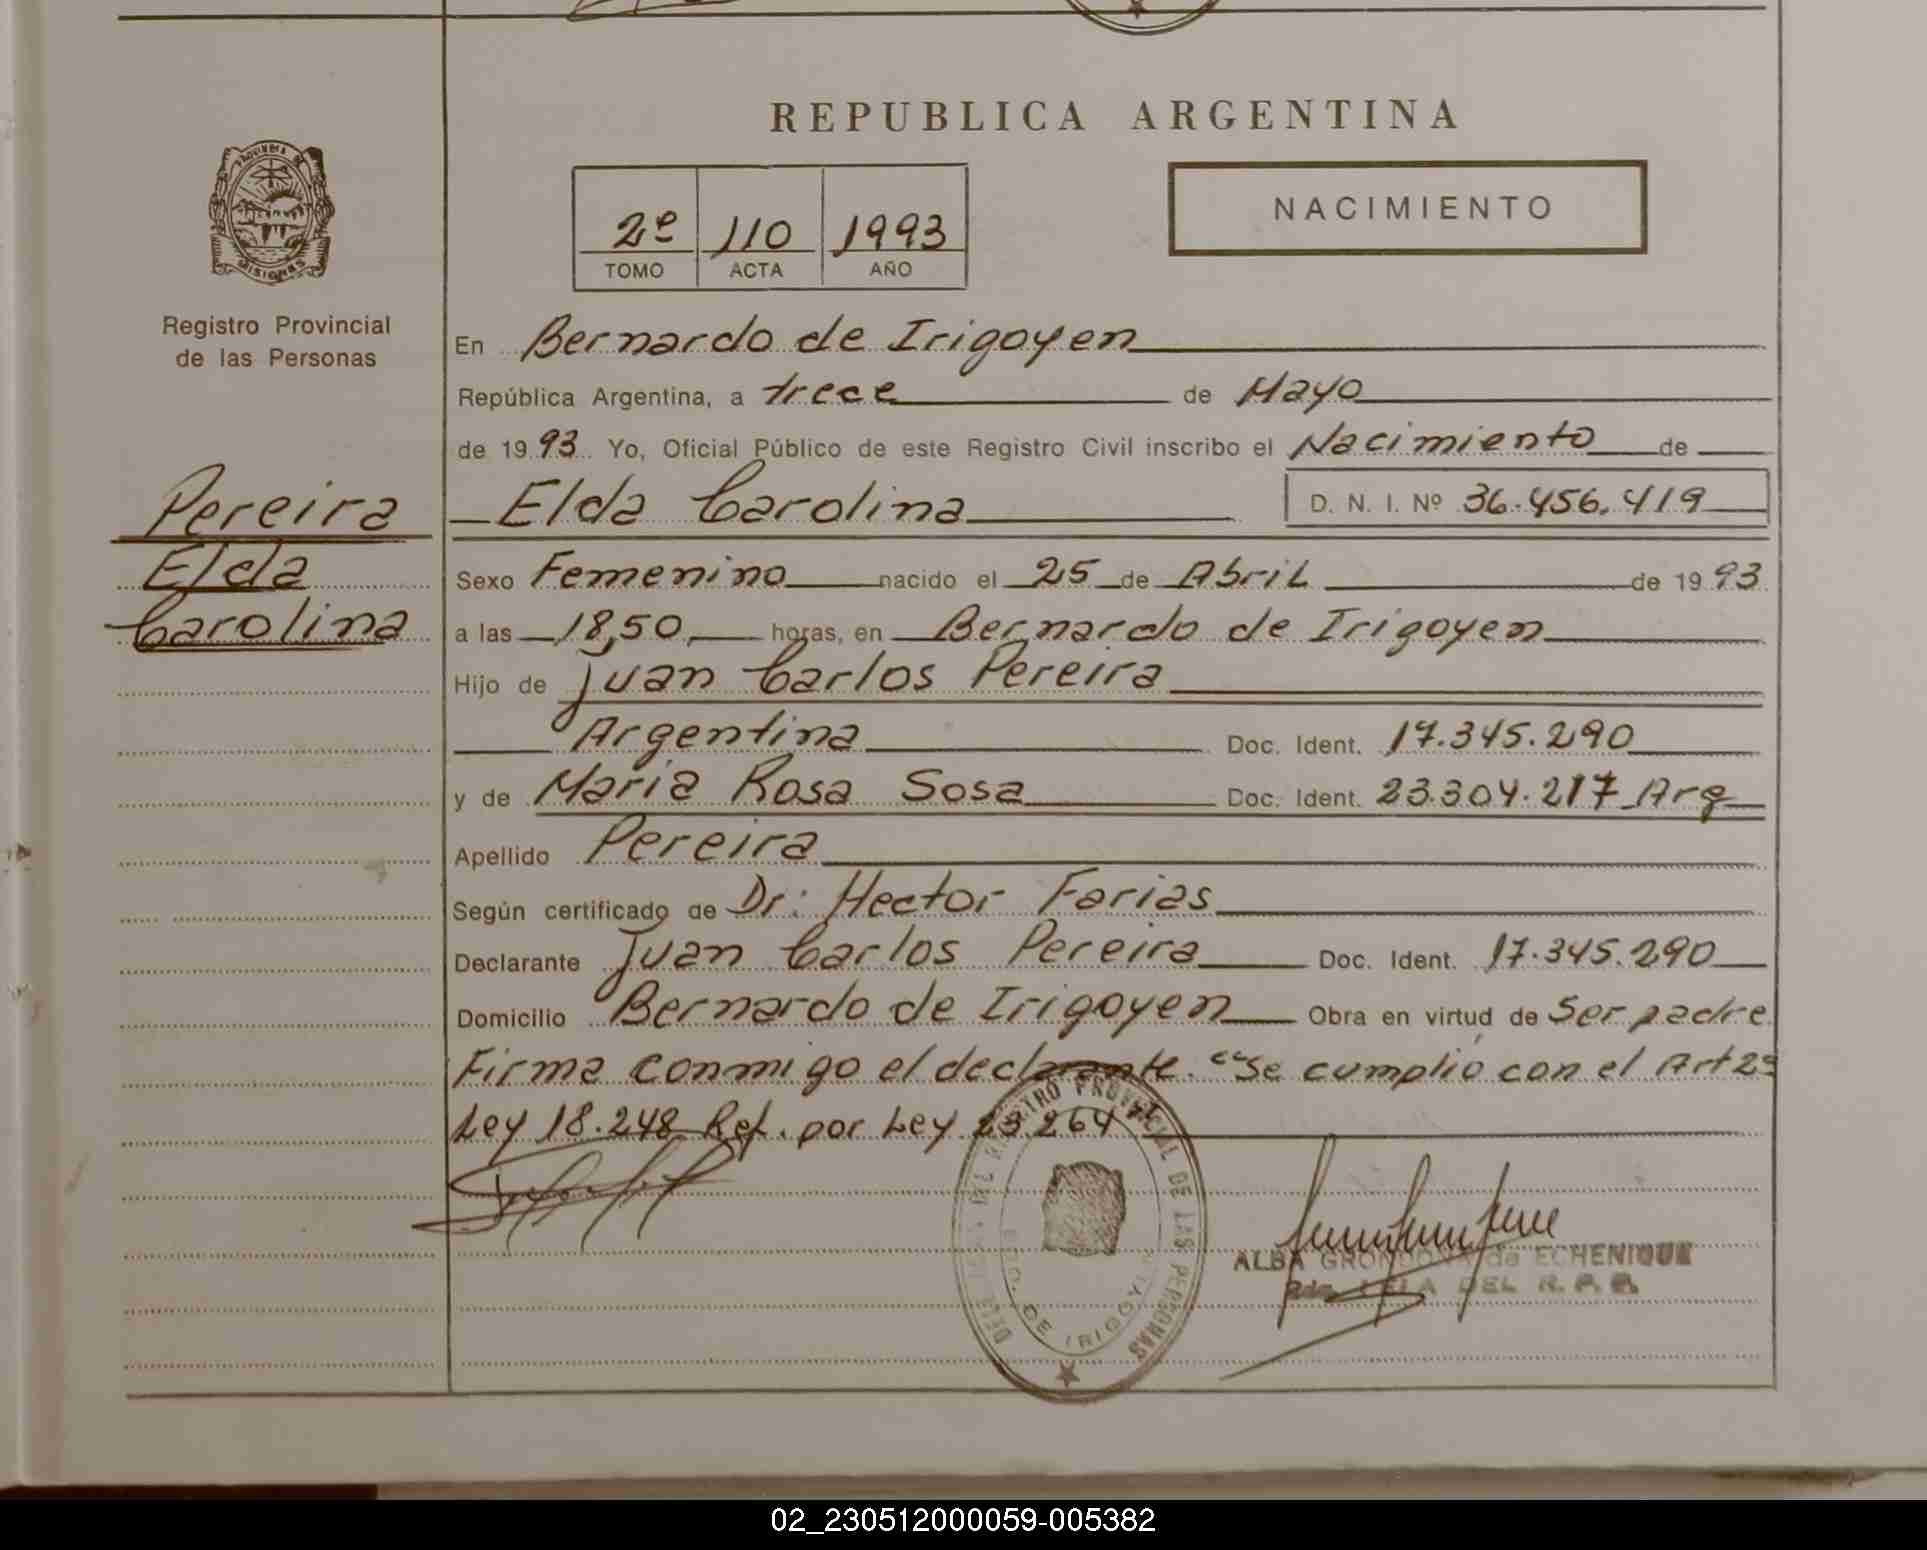 REPUBLICA ARGENTINA
PROVINCIA DE
MISIONES
Registro Provincial
de las Personas
2º 110 1993
TOMO ACTA AÑO
NACIMIENTO
En Bernardo de Irigoyen
República Argentina, a trece de Mayo
de 1993 Yo, Oficial Público de este Registro Civil inscribo el Nacimiento de
Pereira
Elda
Carolina
Elda Carolina D. N. I. Nº 36.456.419
Sexo Femenino nacido el 25 de Abril de 1993
a las 18,50 horas, en Bernardo de Irigoyen
Hijo de Juan Carlos Pereira
Argentina Doc. Ident. 17.345.290
y de Maria Rosa Sosa Doc. Ident. 23.304.217 Arg
Apellido Pereira
Según certificado de Dr: Hector Farias
Declarante Juan Carlos Pereira Doc. Ident. 17.345.290
Domicilio Bernardo de Irigoyen Obra en virtud de Ser padre
Firma conmigo el declarante. "Se cumplió con el Art 2º
Ley 18.248 Ref. por Ley 23.264"
REGISTRO PROVINCIAL DE LAS PERSONAS
BDO. DE IRIGOYEN
ALBA GRONDONA de ECHENIQUE
DEL R. P. P.
02_230512000059-005382